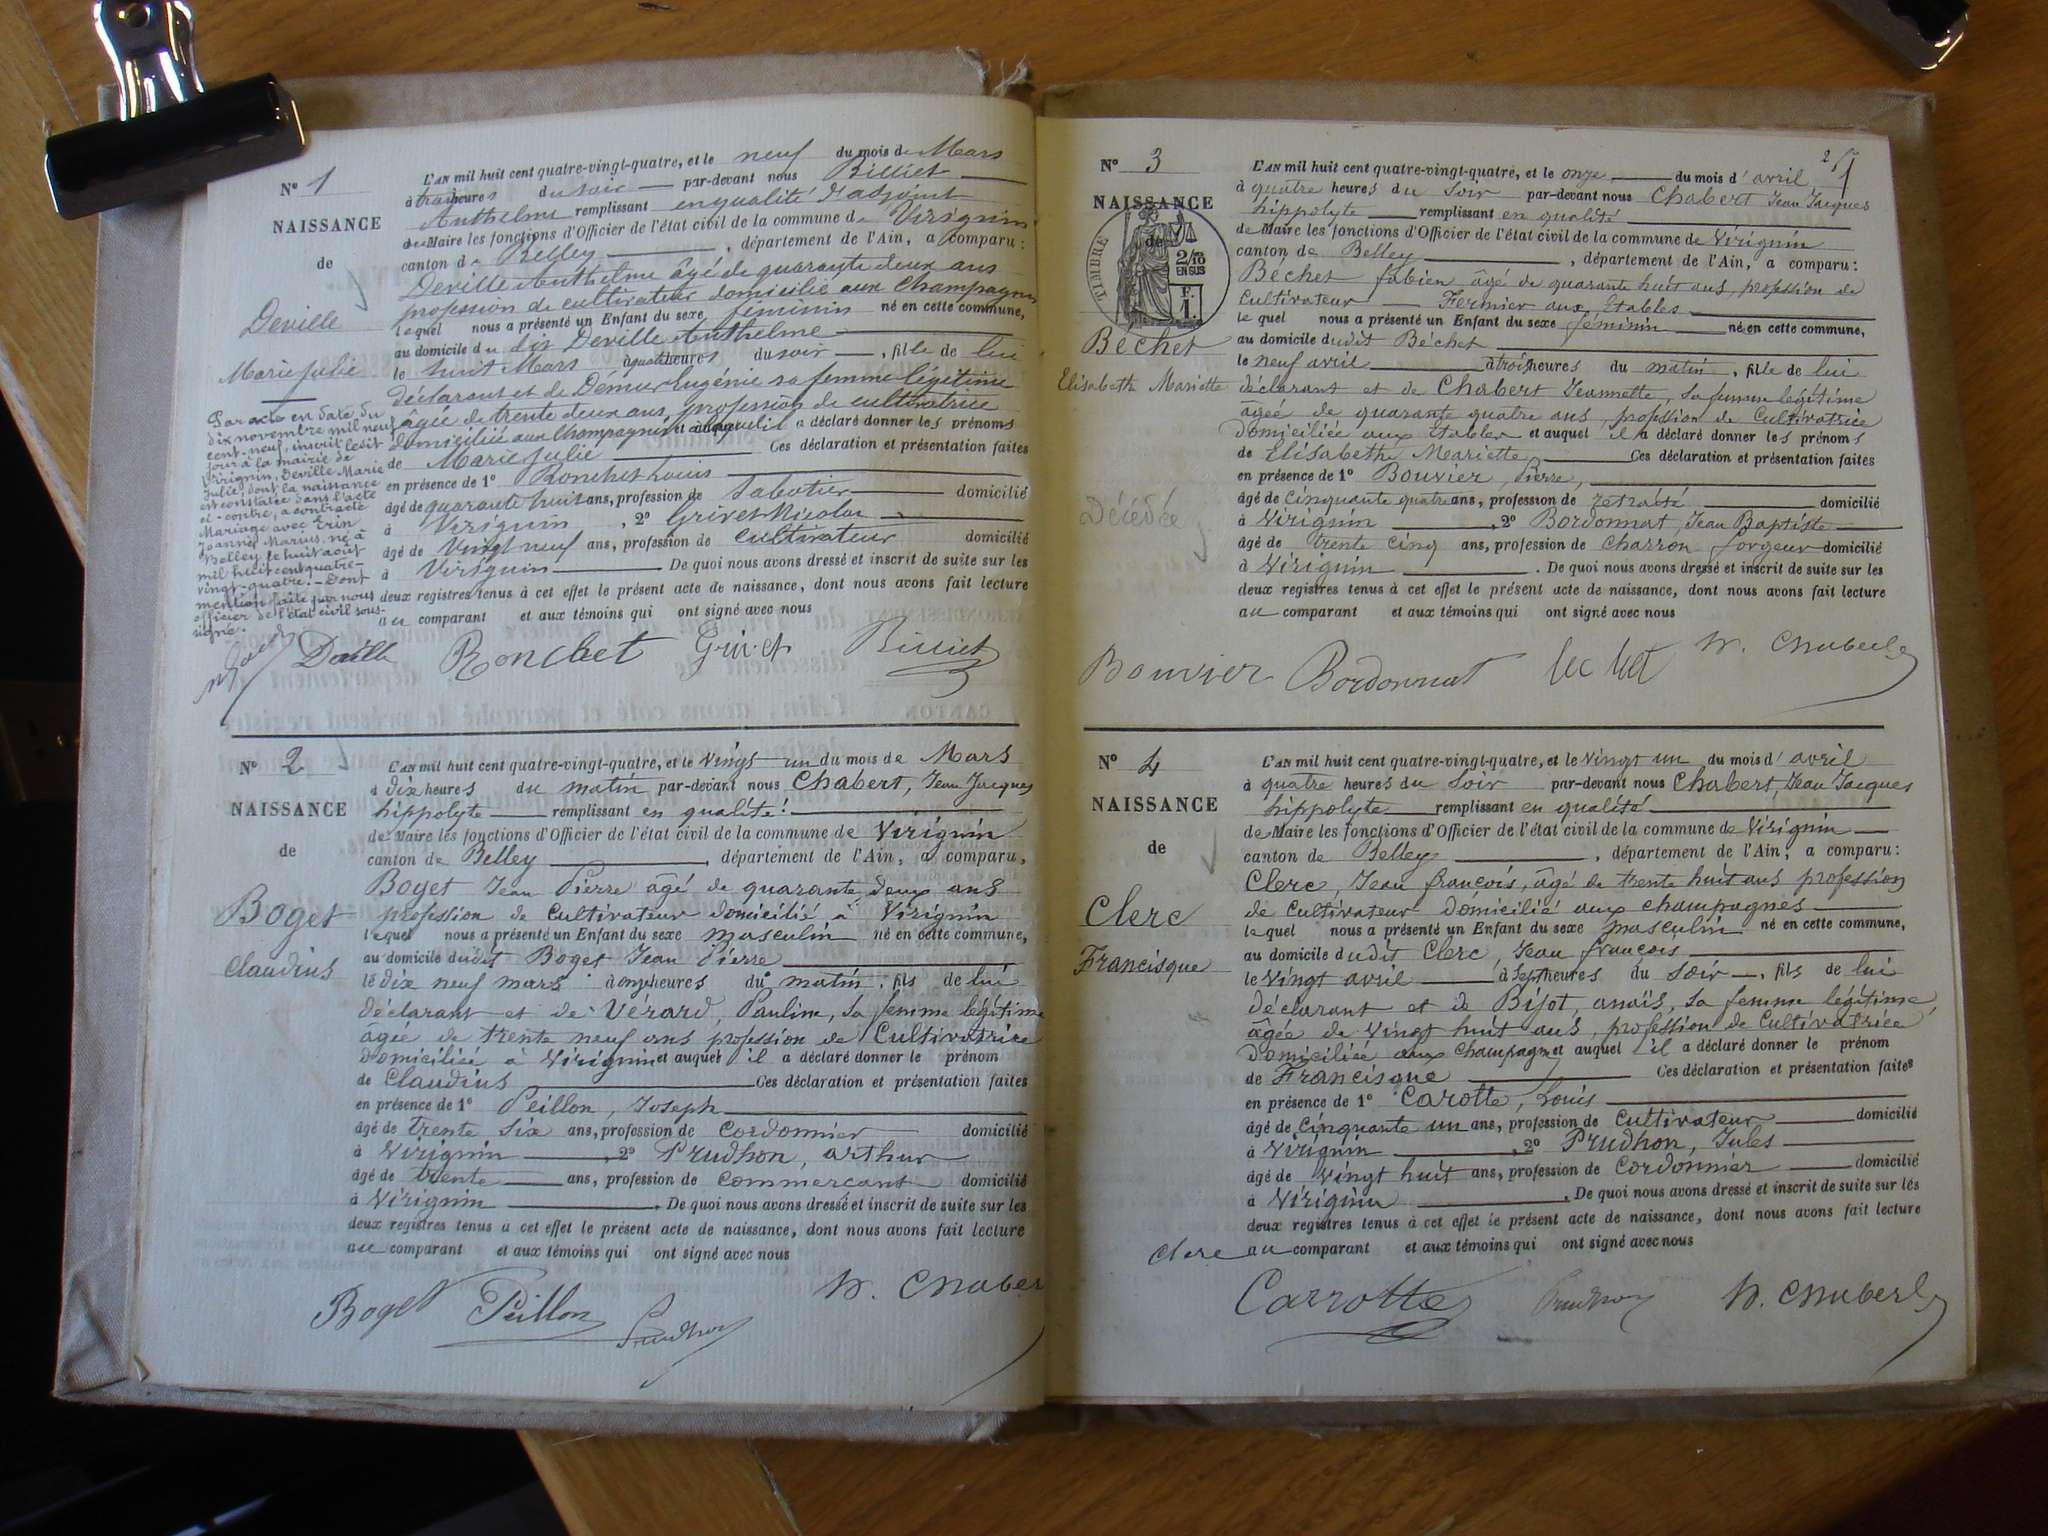 N° 1
NAISSANCE
de
Deville
Marie Julie
Par acte en date du
dix novembre mil neuf
cent-neuf, inscrit ledit
jour à la mairie de
Virignin, Deville Marie
Julie, dont la naissance
est constatée dans l'acte
ci-contre, a contracté
Mariage avec
Joannès Marius, né à
Belley le huit août
mil huit cent quatre-
vingt-quatre. - Dont
mention faite par nous
officier de l'état civil sous-
signé.
L'AN mil huit cent quatre-vingt-quatre, et le neuf du mois de Mars
à trois heures du soir par-devant nous Billiet
Anthelme remplissant en qualité d'adjoint
au Maire les fonctions d'Officier de l'état civil de la commune de Virignin
canton de Belley, département de l'Ain, a comparu :
Deville Anthelme âgé de quarante deux ans
profession de cultivateur domicilié aux Champagnes
lequel nous a présenté un Enfant du sexe féminin né en cette commune,
au domicile du dit Deville Anthelme
le huit Mars à quatre heures du soir, fille de lui
déclarant et de Démur Eugénie sa femme légitime
âgée de trente deux ans, profession de cultivatrice
domiciliée aux Champagnes et auquel il a déclaré donner les prénoms
de Marie Julie Ces déclaration et présentation faites
en présence de 1° Ronchet Louis
âgé de quarante huit ans, profession de Sabotier domicilié
à Virignin, 2° Grivet Nicolas
âgé de Vingt neuf ans, profession de cultivateur domicilié
à Virignin. De quoi nous avons dressé et inscrit de suite sur les
deux registres tenus à cet effet le présent acte de naissance, dont nous avons fait lecture
au comparant et aux témoins qui ont signé avec nous
Deville Ronchet Grivet Billiet
N° 2
NAISSANCE
de
Boget
Claudius
L'AN mil huit cent quatre-vingt-quatre, et le vingt un du mois de Mars
à dix heures du matin par-devant nous Chabert, Jean Jacques
hippolyte remplissant en qualité :
de Maire les fonctions d'Officier de l'état civil de la commune de Virignin
canton de Belley, département de l'Ain, a comparu,
Boget Jean Pierre âgé de quarante deux ans
profession de Cultivateur domicilié à Virignin
lequel nous a présenté un Enfant du sexe masculin né en cette commune,
au domicile dudit Boget Jean Pierre
le dix neuf mars à onze heures du matin, fils de lui
déclarant et de Vérard, Pauline, sa femme légitime
âgée de trente neuf ans profession de Cultivatrice
domiciliée à Virignin et auquel il a déclaré donner le prénom
de Claudius Ces déclaration et présentation faites
en présence de 1° Peillon, Joseph
âgé de trente six ans, profession de Cordonnier domicilié
à Virignin, 2° Prudhon, arthur
âgé de trente ans, profession de commerçant domicilié
à Virignin. De quoi nous avons dressé et inscrit de suite sur les
deux registres tenus à cet effet le présent acte de naissance, dont nous avons fait lecture
au comparant et aux témoins qui ont signé avec nous
Boget Peillon Prudhon H. Chaber
N° 3
NAISSANCE
de
TIMBRE
2/10
EN SUS
F.
1.
Béchet
Elisabeth Mariette
Décédée
2
L'AN mil huit cent quatre-vingt-quatre, et le onze du mois d'avril
à quatre heures du Soir par-devant nous Chabert Jean Jacques
hippolyte remplissant en qualité
de Maire les fonctions d'Officier de l'état civil de la commune de Virignin
canton de Belley, département de l'Ain, a comparu :
Béchet fabien âgé de quarante huit ans, profession de
Cultivateur Fermier aux Etables
lequel nous a présenté un Enfant du sexe féminin né en cette commune,
au domicile dudit Béchet
le neuf avril à trois heures du matin, fille de lui
déclarant et de Chabert Jeannette, sa femme légitime
âgée de quarante quatre ans, profession de Cultivatrice
domiciliée aux Etables et auquel il a déclaré donner les prénoms
de Elisabeth Mariette Ces déclaration et présentation faites
en présence de 1° Bouvier, Pierre,
âgé de cinquante quatre ans, profession de retraité domicilié
à Virignin, 2° Bordonnat, Jean Baptiste
âgé de trente cinq ans, profession de Charron forgeur domicilié
à Virignin. De quoi nous avons dressé et inscrit de suite sur les
deux registres tenus à cet effet le présent acte de naissance, dont nous avons fait lecture
au comparant et aux témoins qui ont signé avec nous
Bouvier Bordonnat Bechet H. Chabert
N° 4
NAISSANCE
de
Clerc
Francisque
L'AN mil huit cent quatre-vingt-quatre, et le vingt un du mois d'avril
à quatre heures du Soir par-devant nous Chabert, Jean Jacques
hippolyte remplissant en qualité
de Maire les fonctions d'Officier de l'état civil de la commune de Virignin
canton de Belley, département de l'Ain, a comparu :
Clerc, Jean françois, âgé de trente huit ans profession
de Cultivateur domicilié aux champagnes
lequel nous a présenté un Enfant du sexe masculin né en cette commune,
au domicile dudit Clerc, Jean françois
le vingt avril à sept heures du Soir, fils de lui
déclarant et de Bijot, anaïs, sa femme légitime,
âgée de vingt huit ans, profession de Cultivatrice,
domiciliée aux champagnes et auquel il a déclaré donner le prénom
de Francisque Ces déclaration et présentation faites
en présence de 1° Carotte, Louis
âgé de Cinquante un ans, profession de Cultivateur domicilié
à Virignin, 2° Prudhon, Jules
âgé de Vingt huit ans, profession de Cordonnier domicilié
à Virignin. De quoi nous avons dressé et inscrit de suite sur les
deux registres tenus à cet effet le présent acte de naissance, dont nous avons fait lecture
au comparant et aux témoins qui ont signé avec nous
Clerc
Carrotte Prudhon H. Chabert